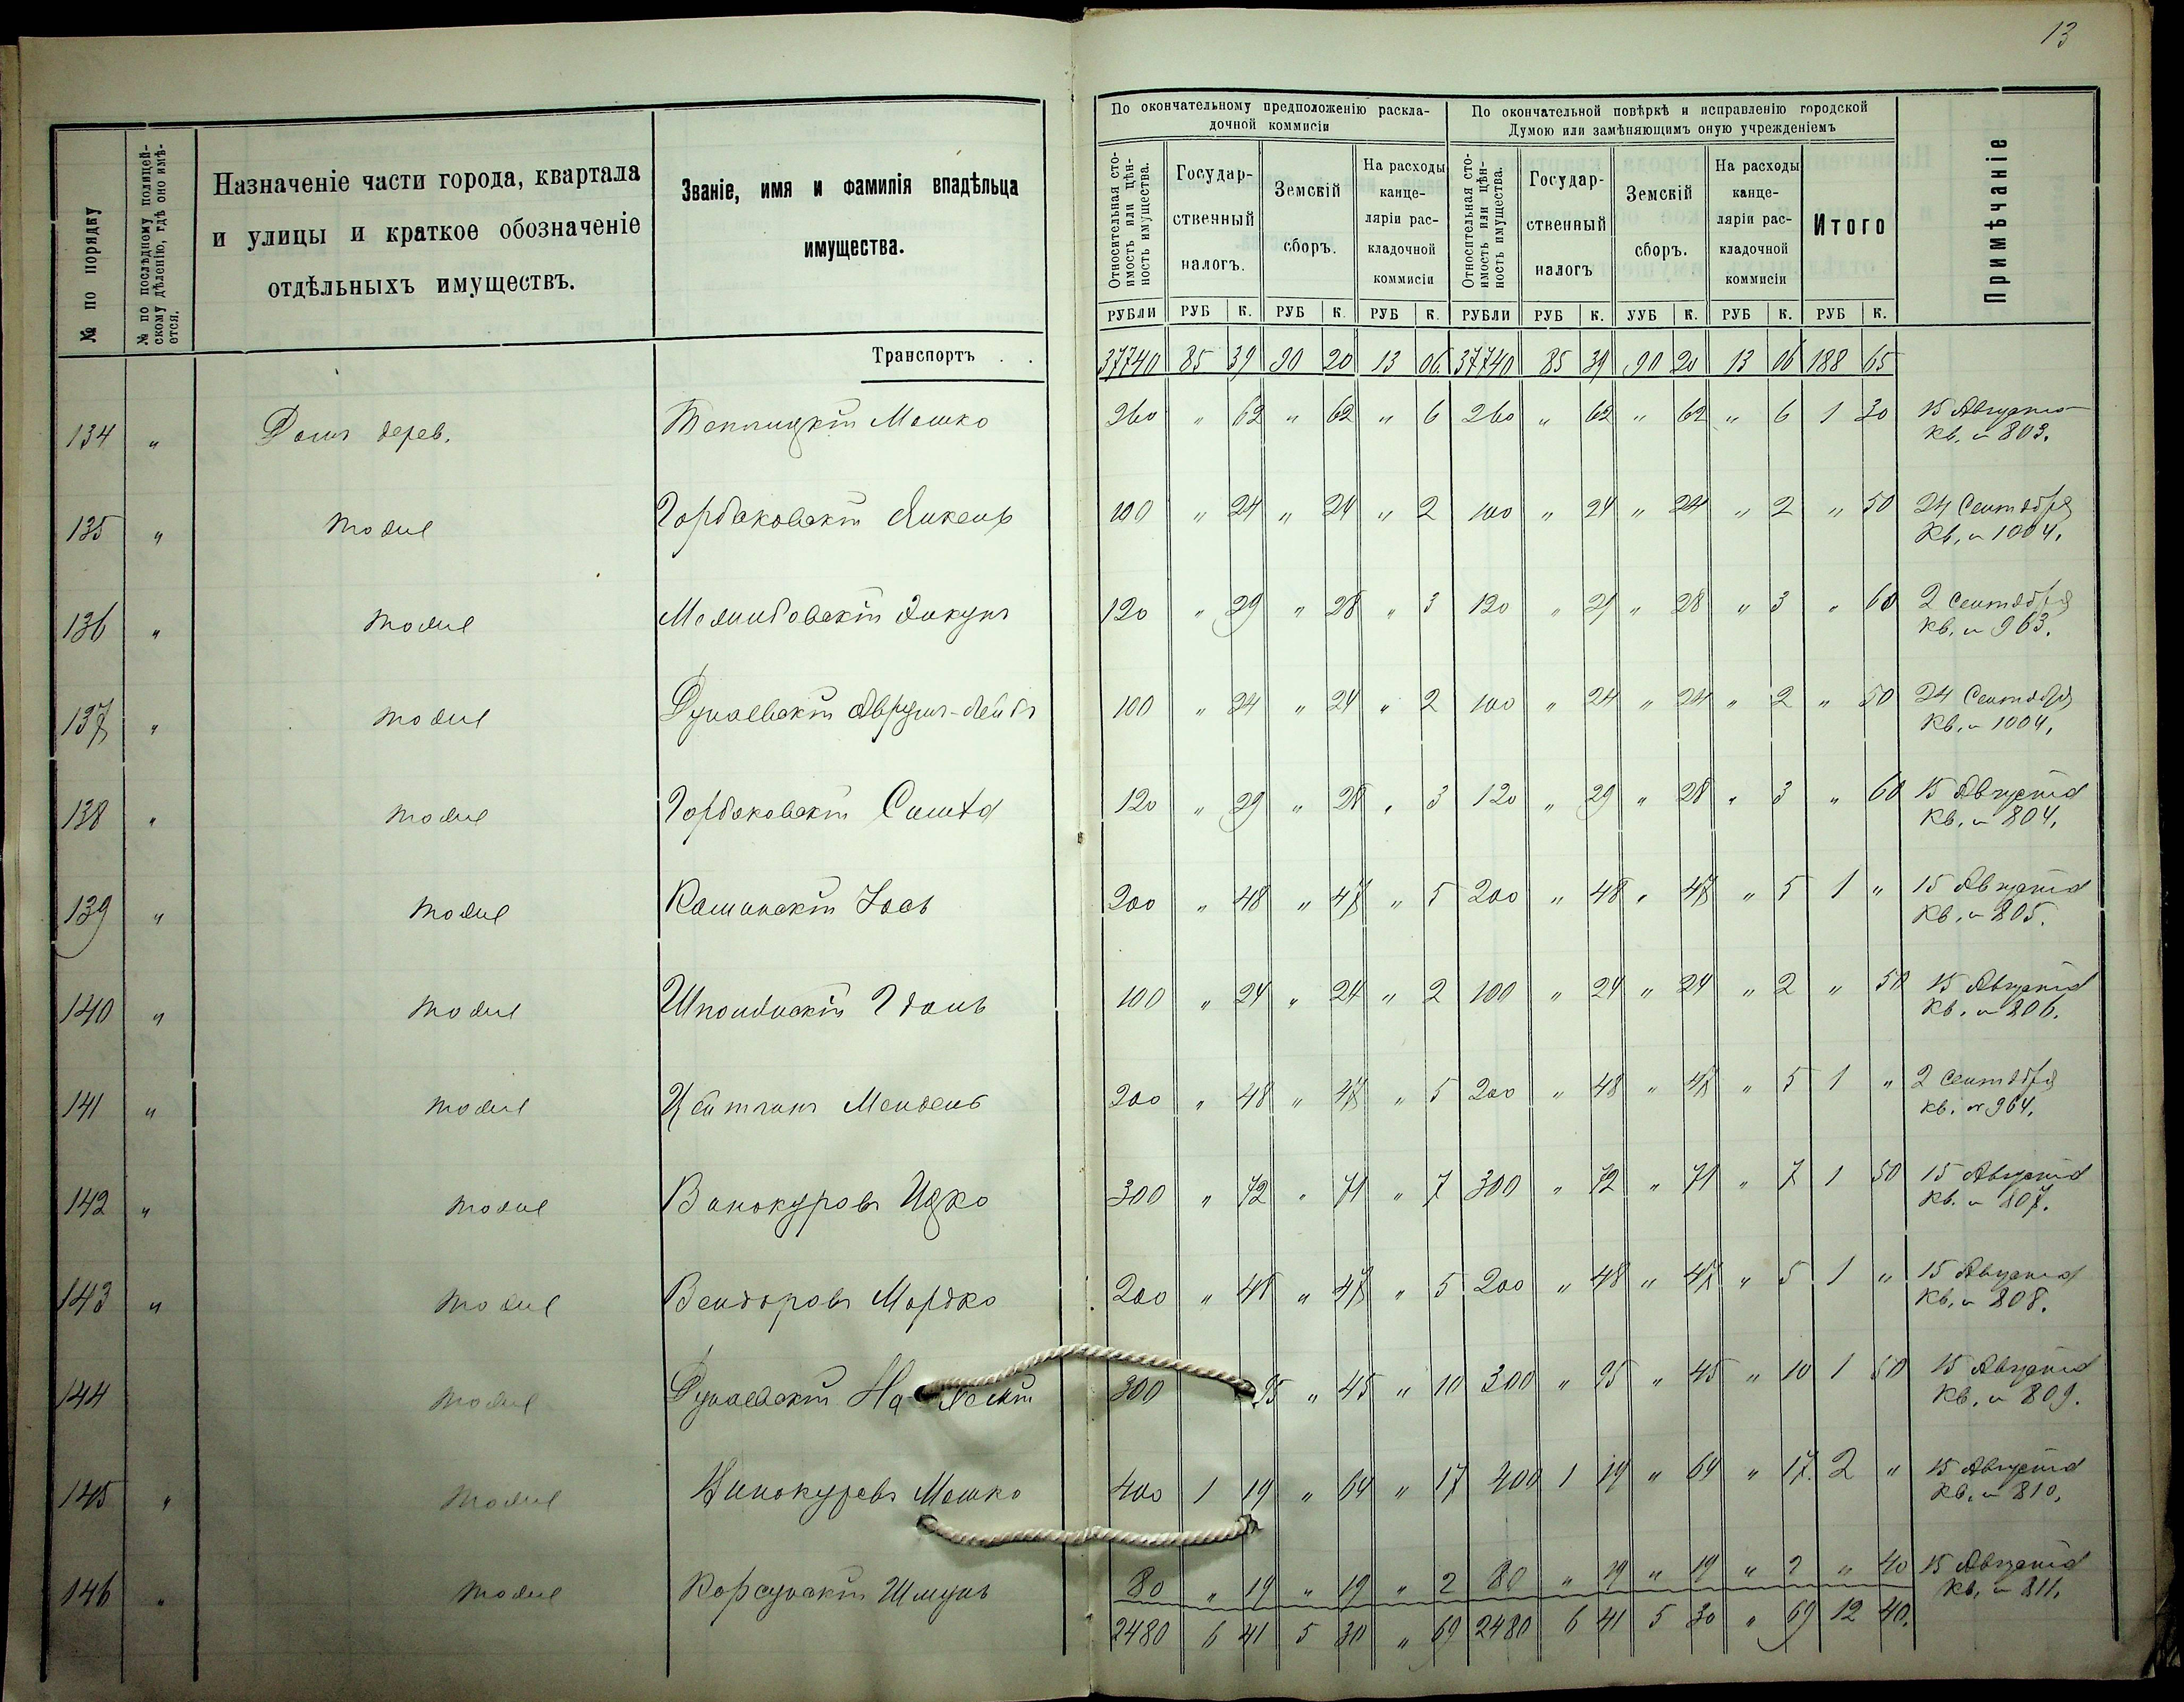 13
№ по порядку
№ по послѣднему полицей-
скому дѣленію, гдѣ оно имѣ-
ется.
Назначеніе части города, квартала
и улицы и краткое обозначеніе
отдѣльныхъ имуществъ.
Званіе, имя и фамилія владѣльца
имущества.
По окончательному предположенію раскла-
дочной коммисіи
Относительная сто-
имость или цѣн-
ность имущества.
Государ-
ственный
налогъ.
Земскій
сборъ.
На расходы
канце-
ляріи рас-
кладочной
коммисіи
По окончательной повѣркѣ и исправленію городской
Думою или замѣняющимъ оную учрежденіемъ
Относительная сто-
имость или цѣн-
ность имущества.
Государ-
ственный
налогъ
Земскій
сборъ.
На расходы
канце-
ляріи рас-
кладочной
коммисіи
Итого
Примѣчаніе
РУБЛИ РУБ К. РУБ К. РУБ К. РУБЛИ РУБ К. УУБ К. РУБ К. РУБ К.
Транспортъ . . 37740 85 39 90 20 13 06 37740 85 39 90 20 13 06 188 65
134 " Домъ дерев. Теплицкій Мошко 260 " 62 " 62 " 6 260 " 62 " 62 " 6 1 30 15 Августа
кв. № 803.
135 " тоже Горбаковскій Янкель 100 " 24 " 24 " 2 100 " 24 " 24 " 2 " 50 24 Сентября
Кв. № 1004.
136 " тоже 120 " 29 " 28 " 3 120 " 29 " 28 " 3 " 60 2 Сентября
кв. № 963.
137 " тоже Дунаевскій Аврумъ-Лейбъ 100 " 24 " 24 " 2 100 " 24 " 24 " 2 " 50 24 Сентября
Кв. № 1004.
138 " тоже Горбаковскій Симха 120 " 29 " 28 " 3 120 " 29 " 28 " 3 " 60 15 Августа
кв. № 804.
139 " тоже Кошинскій Іось 200 " 48 " 47 " 5 200 " 48 " 47 " 5 1 " 15 Августа
Кв. № 805.
140 " тоже 100 " 24 " 24 " 2 100 " 24 " 24 " 2 " 50 15 Августа
Кв. № 806.
141 " тоже Цейтлинъ Мендель 200 " 48 " 47 " 5 200 " 48 " 47 " 5 1 " 2 Сентября
кв. № 964.
142 " тоже Винокуровъ Ицко 300 " 72 " 71 " 7 300 " 72 " 71 " 7 1 50 15 Августа
Кв. № 807.
143 " тоже Вендеровъ Мордко 200 " 48 " 47 " 5 200 " 48 " 47 " 5 1 " 15 Августа
Кв. № 808.
144 тоже Дунаевскій 300 95 " 45 " 10 300 " 95 " 45 " 10 1 50 15 Августа
Кв. № 809.
145 " тоже Винокуровъ Мошко 400 1 19 " 64 " 17 400 1 19 " 64 " 17 2 " 15 Августа
Кв. № 810.
146 " тоже Корсунскій Шмуль 80 " 19 " 19 " 2 80 " 19 " 19 " 2 " 40 15 Августа
Кв. № 811.
2480 6 41 5 30 " 69 2480 6 41 5 30 " 69 12 40.